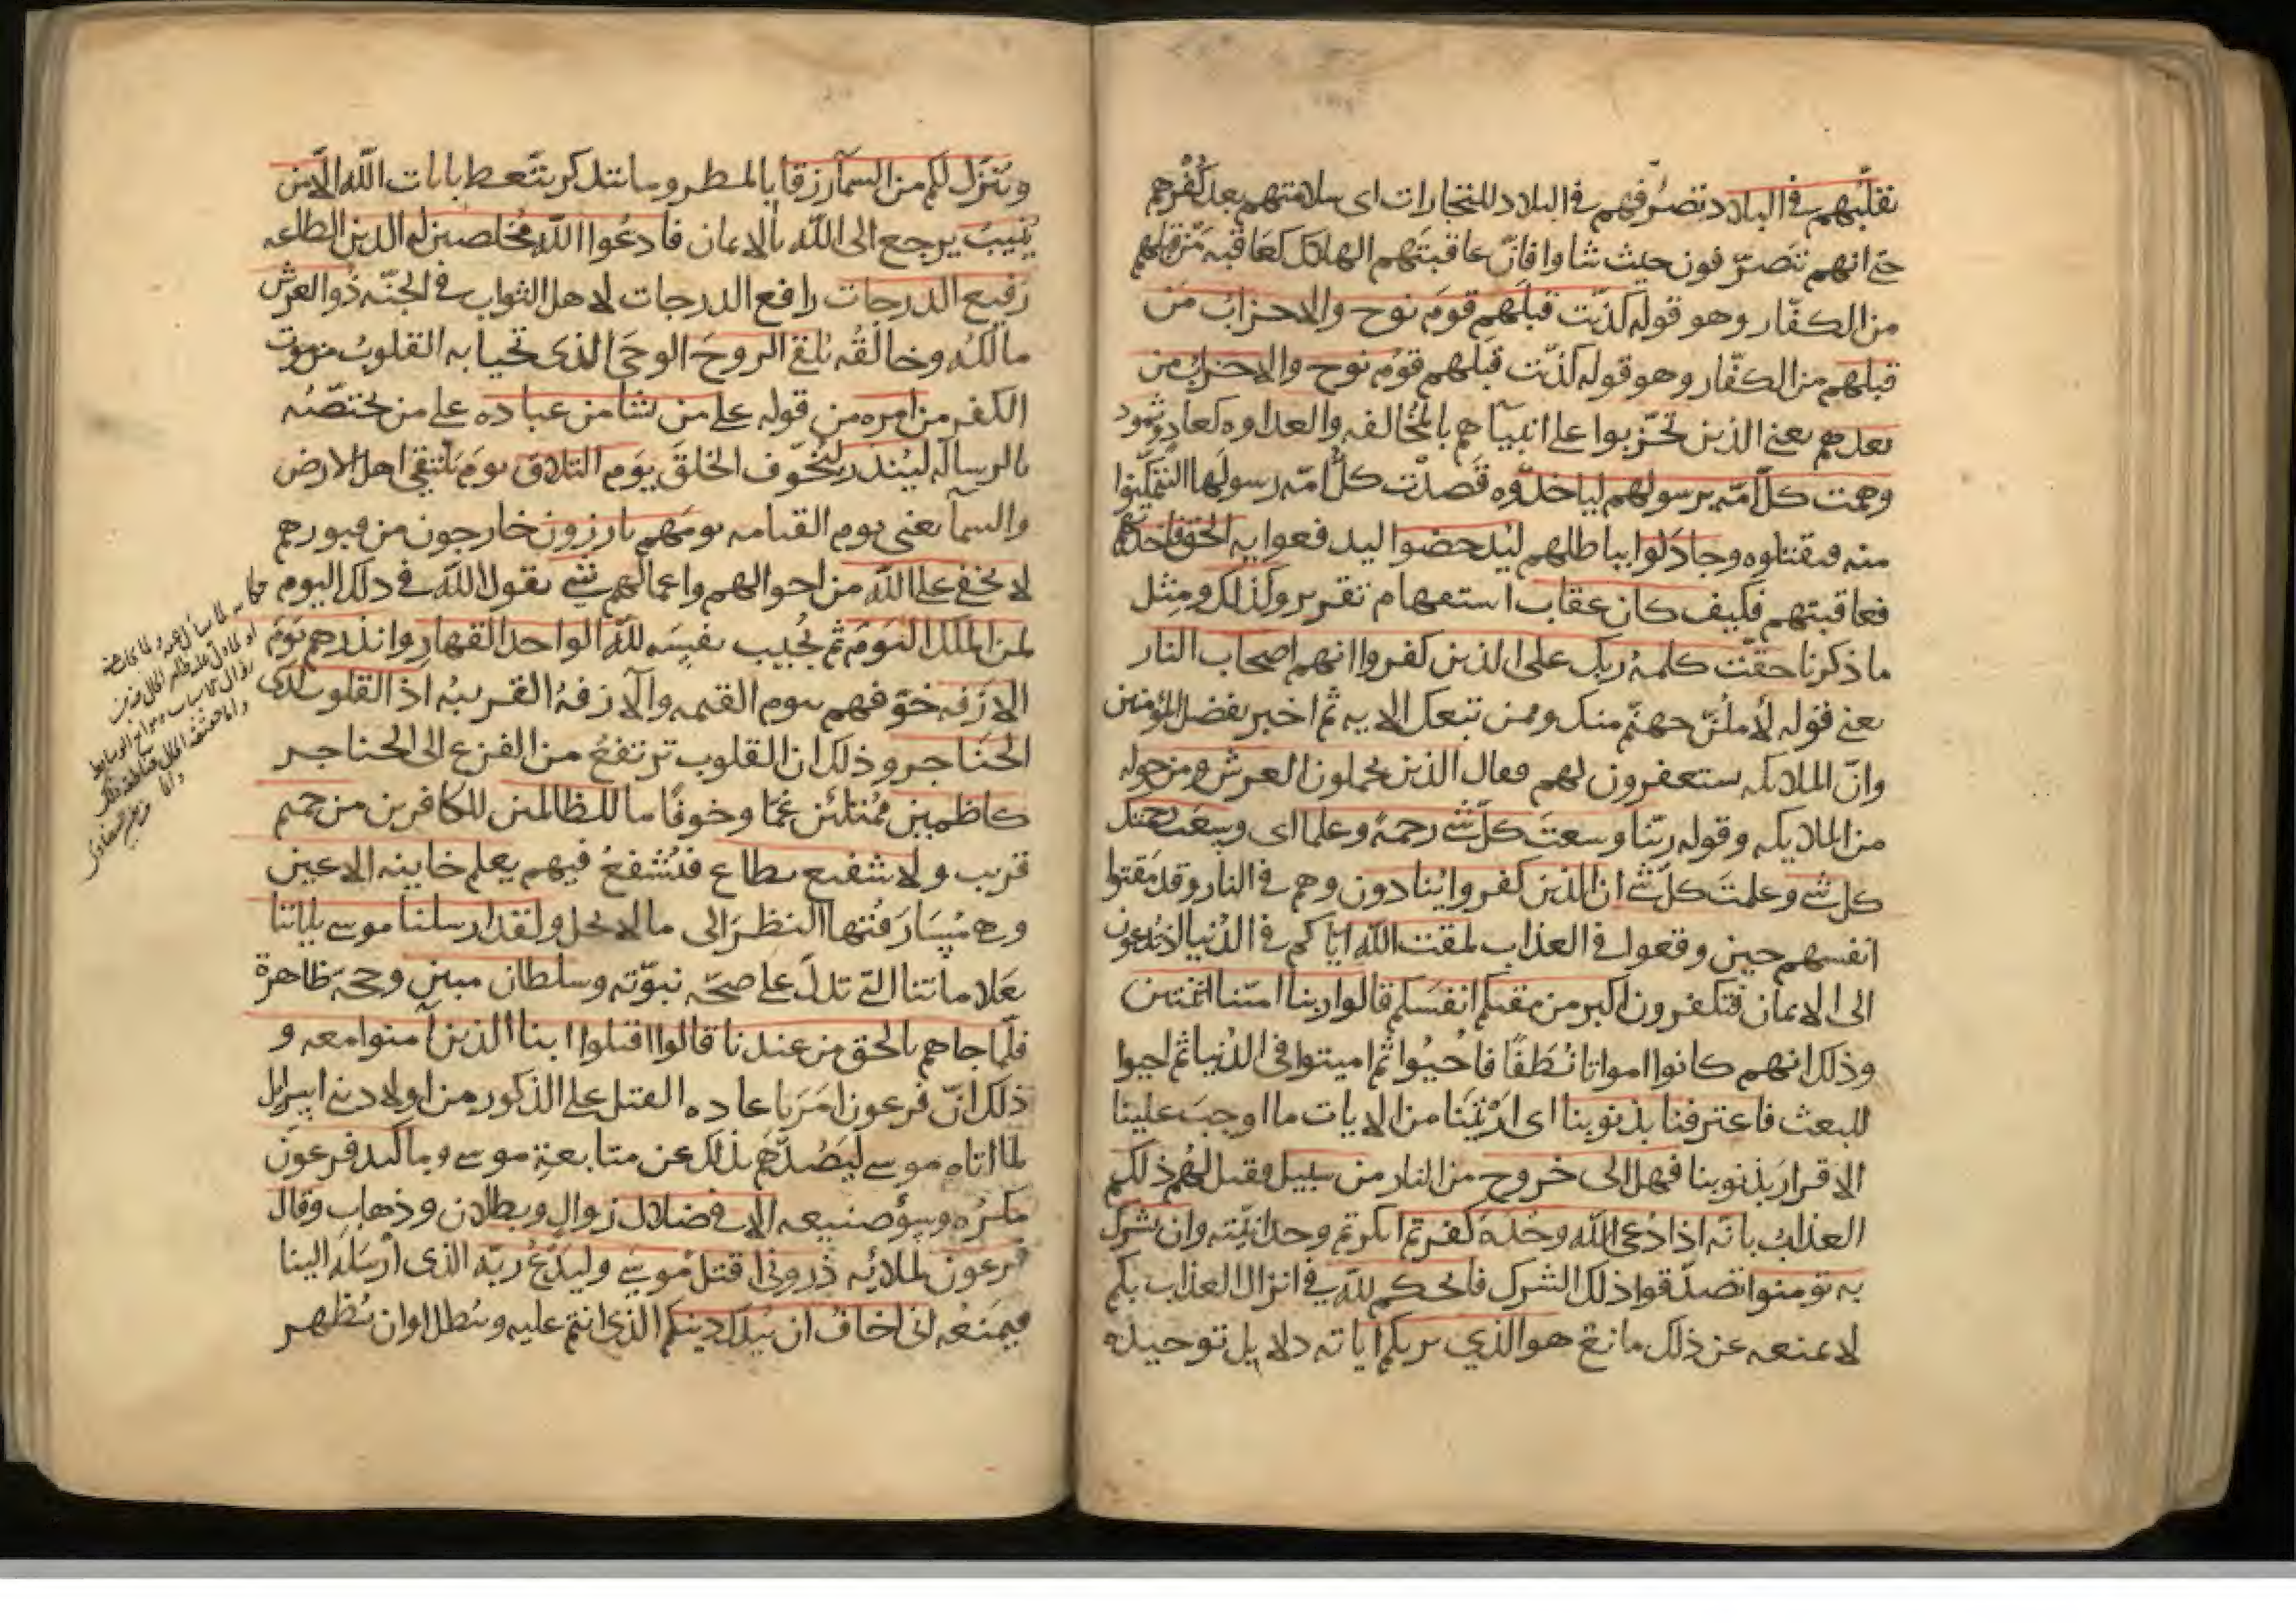 تقلّبهم في البلاد تصرّفهم في البلاد للتجارات اى سلامتهم بعد كُفْرهم
حتى انهم تتصرّفون حيث شاوا فانّ عاقبتهم الهلاك كعَاقبَه مَنْ قبلهم
من الكفّار وهو قوله كذّبت قبلهم قومَ نوح والاحزابُ مَن
قبلهم من الكفّار وهو قوله كذّبت قبلهم قومُ نوح والاحزاب من
بعدهم يعنى الذين تحزّبوا على انبيآهم بالمُخالفه والعداوه كعاد وثمود
وهمت كلّ امّه برسولهم لياخذوه قَصدَت كلُّ امّه رسولَها لتتمكّنوا
منه فيقتلوه وجادَلوا بباطلهم ليُدحضوا ليدفعوا به الحق فاخذتهم
فعاقبتهم فكيف كان عقاب استفهام تقرير وكذلك ومِثل
ما ذكرنا حقّت كلمهُ ربك على الذين كفروا انهم اصحاب النار
يعنى قوله لأملئنّ جهنّم منك وممن تبعك الايه ثم اخبر بفضل المؤمنين
وانّ الملايكه يستغفرون لهم فقال الذين يحملون العرش ومن حوله
من الملايكه وقوله ربّنا وسعتَ كلّ شى رحمهً وعلما اى وسِعَت رحمتك
كل شى وعلمتَ كلّ شى ان الذين كفروا يُنادون وهم فى النار وقد مَقتوا
انفسهم حين وقعوا فى العذاب لمقت الله اياكم فى الدُنيا اذ تُدعون
الى الايمان فتكفرون اكبر من مقتكم انفسَكم قالوا ربنا امتّنا اثنتين
وذلك انهم كانوا امواتا نُطَفًا فاُحيُوا ثم اميتوا فى الدُنيا ثم احيوا
للبعث فاعترفنا بذنوبنا اى ارَيْتَنا من الايات ما اوجبَ علينا
الاقرارَ بذنوبنا فهل الى خروج من النار من سبيل فقيل لهُم ذلكم
العذابُ بانّه اذا دُعى الله وحْدَهُ كفرتم انكرتم وحدانيّته وان يشرك
به تومنوا تصدّقوا ذلك الشرك فالحكم لله فى انزال العذاب بكم
لا يمنعه عن ذلك مانع هو الذي يريكم اياته دلايل توحيده
ويُنزّل لكم من السمآ رزقا بالمطر وما يتذكر يتّعظ بايات الله الّا من
يُنيبُ يرجع الى الله بالايمان فادعُوا اللهَ مُخلصين له الدين الطاعه
رَفيع الدرجات رافع الدرجات لاهل الثواب فى الجنّه ذُو العرش
مالكُه وخالقُه يُلقى الروحَ الوحىَ الذى تحيا به القلوبُ من موت
الكفر من امره من قوله على من يشا من عباده على من يختصّه
بالرساله ليُنذر ليُخوّف الخلقَ يَوم التلاق يومَ يَلتقى اهل الارض
والسمآ يعنى يوم القيامه يومَهم بارزون خارجون من قبورهم
لا يخفى على الله من احوالهم واعمالهم شى يقول الله فى ذلك اليوم
لمن الملك اليومَ ثم يُجيب نفسَه لله الواحد القهار وانذرهم يَومَ
الازَفه خوّفهم يوم القيمه والآزفهُ القريبهُ اذ القلوب لدى
الحَناجر وذلك ان القلوب ترتفعُ من الفزع الى الحناجر
كاظمين مُمتلئين غمّا وخوفًا ما للظالمين للكافرين من حميم
قريب ولا شفيع يطاع فيُشفعُ فيهم يعلم خاينه الاعين
وهى مُسَارَقتها النظرَ الى ما لا يحل ولقد ارسلنا موسى باياتنا
بعَلاماتنا التى تدلّ على صحّه نبوّته وسلطان مبين وحجّه ظاهرة
فلمّا جاهم بالحق من عندنا قالوا اقتلوا ابنا الذين آمنوا معه و
ذلك انّ فرعون امَرَ باعاده القتل على الذكور من اولاد بنى اسرايل
لما اتاه موسى ليَصُدّهم بذلك عن متابعةِ موسى وما كيد فرعونَ
مكرُه وسؤ صنيعه الا فى ضلال زوالٍ وبطلان وذهابٍ وقال
فرعون لملائه ذرونى اقتل موسى وليَدْعُ ربّه الذى أرسَله الينا
فيمنَعُه انى اخافُ ان يُبدّل دينكم الذى انتم عليه ويُبطل او ان يُظهر